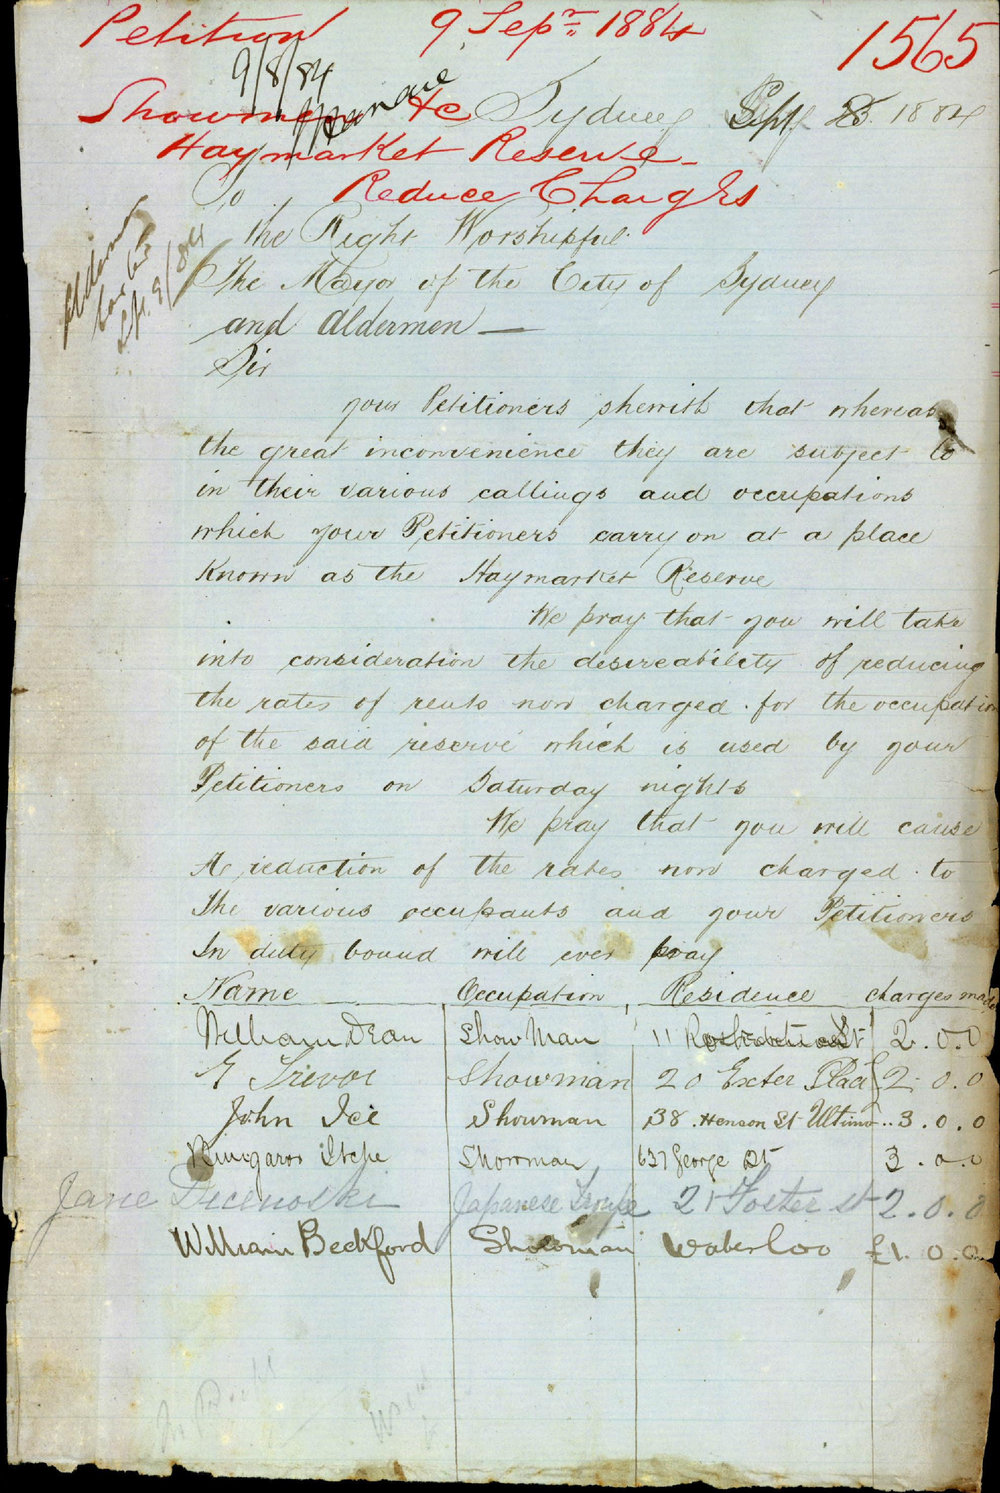 Petition 9 Sepr 1884 1565
9/8/84
Showmen &c Sydney Sept 8 1884
Haymarket Reserve
Reduce Charges
To
The Right Worshipful
The Mayor of the City of Sydney
and Aldermen —
Sir
your Petitioners sheweth that whereas
the great inconvenience they are subject to
in their various callings and occupations
which your Petitioners carry on at a place
Known as the Haymarket Reserve
We pray that you will take
into consideration the desireability of reducing
the rates of rents now charged for the occupation
of the said reserve which is used by your
Petitioners on Saturday nights
We pray that you will cause
A reduction of the rates now charged to
The various occupants and your Petitioners
In duty bound will ever pray
Name Occupation Residence charges made
William Dean Show Man 11 St 2.0.0
Trevor Showman 20 Exeter Place £2.0.0
John Ice Showman 38 Henson St Ultimo 3.0.0
Showman 637 George St 3.0.0
Jane Japanese Troupe 21 Foster st 2.0.0
William Beckford Showman Waterloo £1.0.0